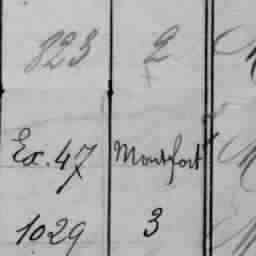 823 2
Ex. 47 Montfort
1029 3